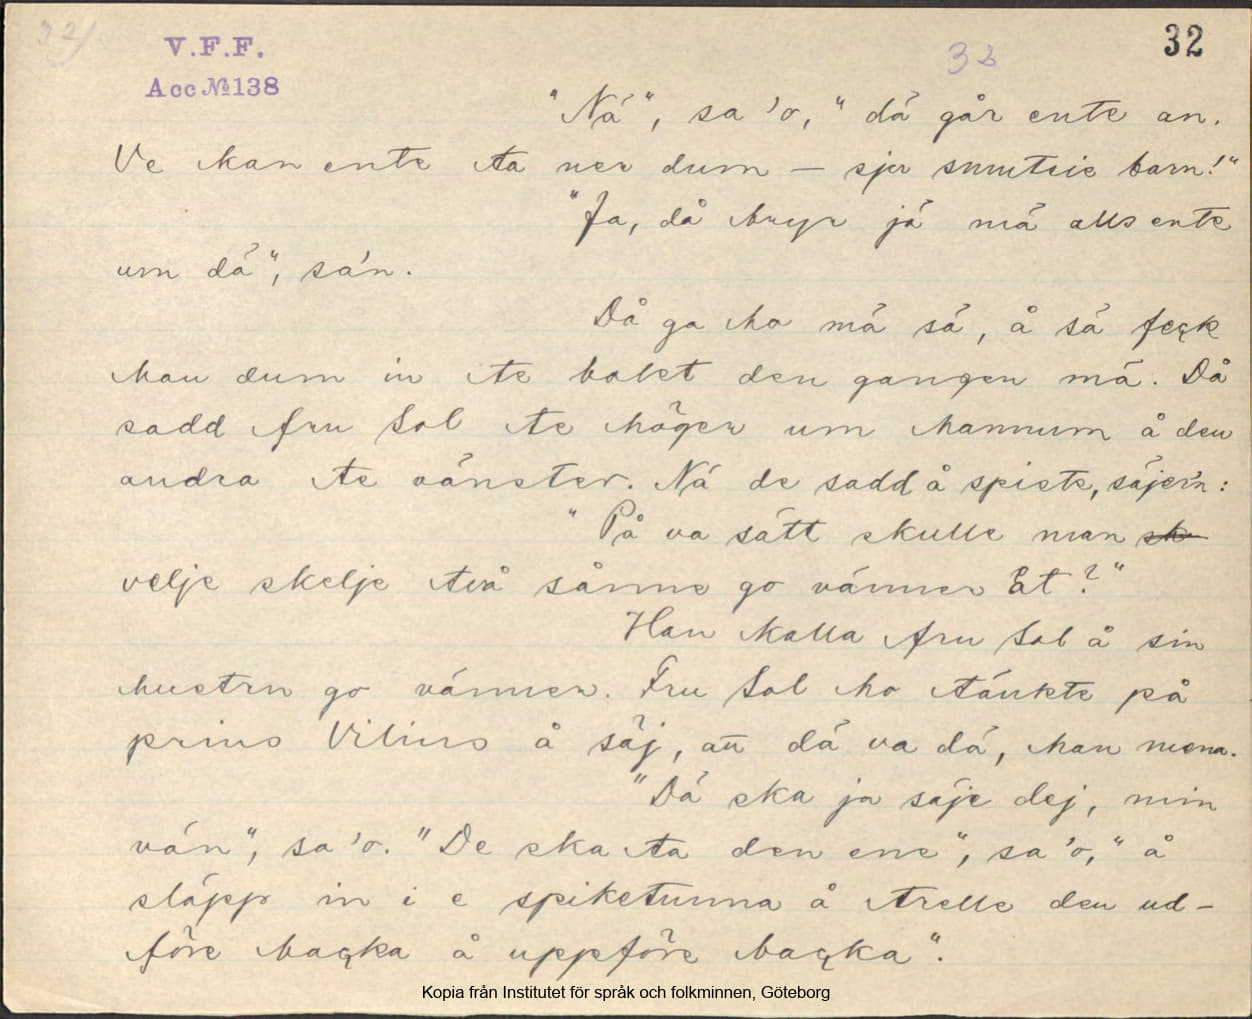 32)
V.F.F.
Acc №138
32
32
"Nä", sa 'o, "dä går ente an.
Ve kan ente ta ner dum — sju smutsie barn!"
"Ja, då bryr jä mä alls ente
um dä", sa'n.
Då ga ho mä sä, å sä feck
han dum in te bolet den gangen mä. Då
sadd fru Sol te höger um hannum å den
andra te vänster. Nä de sadd å spiste, säjer'n:
"På va sätt skulle man sk
velje skelje två sånne go vänner åt?"
Han kalla fru Sol å sin
hustru go vänner. Fru Sol ho tänkte på
prins Vilius å säj, att dä va dä, han mena.
"Dä ska ja säje dej, min
vän", sa 'o. "De ska ta den ene", sa 'o, "å
släpp in i e spiketunna å trelle den ud-
före backa å uppföre backa".
Kopia från Institutet för språk och folkminnen, Göteborg